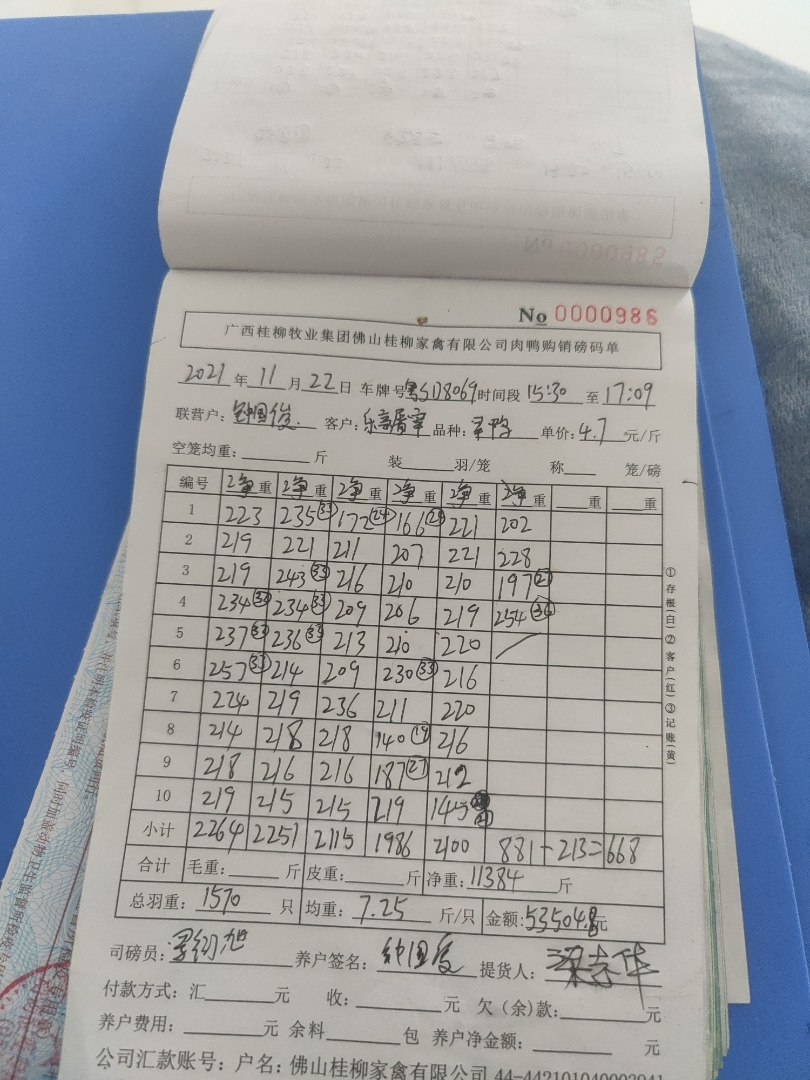 No 0000986
广西桂柳牧业集团佛山桂柳家禽有限公司肉鸭购销磅码单
2021年11月22日 车牌号粤SD8069时间段15:30至17:09
联营户:钟国俊 客户: 品种: 单价:4.7元/斤
空笼均重: 斤 装 羽/笼 称 笼/磅
编号 净重 净重 净重 净重 净重 净重 重 重
1 223 235㉝ 172㉔ 166 221 202
2 219 221 211 207 221 228
3 219 243㉝ 216 210 210 197㉗
4 234㉝ 234㉝ 209 206 219 254㊱
5 237㉝ 236㉝ 213 210 220
6 257㉝ 214 209 230㉝ 216
7 224 219 236 211 220
8 214 218 218 140⑲ 216
9 218 216 216 187㉗ 212
10 219 215 215 219 145
小计 2264 2251 2115 1986 2100 881-213=668
合计 毛重: 斤 皮重: 斤 净重:11384斤
总羽重:1570只 均重:7.25斤/只 金额:53504.8元
司磅员: 养户签名: 提货人:梁志华
付款方式:汇 元 收: 元 欠(余)款: 元
养户费用: 元 余料 包 养户净金额: 元
公司汇款账号:户名:佛山桂柳家禽有限公司 44-442101040003941
①存根(白)②客户(红)③记账(黄)